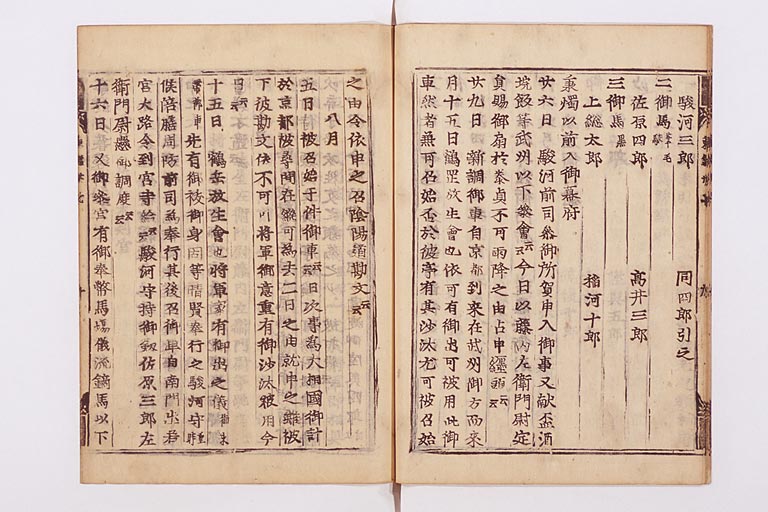 駿河三郎 同四郎引之
二御馬
佐原四郎 高井三郎
三御馬黒
上総太郎 播河十郎
秉燭以前入御幕府
廿六日駿河前司参御所賀申入御事又献盃酒
埦飯等武州以下参會云々今日以藤内左衛門尉定
員賜御扇於泰貞不可雨降之由占申云々
廿九日 新調御車自京都到来在武州御方而来
月十五日鶴岡放生會也依可有出御可被用此御
車然者兼可召始否於彼亭有其沙汰尤可被召始
之由令依申之召陰陽道勘文云々
八月
五日 被召始于件御車云々日次事為大相國御計
於京都被尋問在継可為去二日之由就申之雖被
下彼勘文依不可叶将軍御意重有御沙汰被用今
日云々
十五日 鶴岳放生會也将軍家有御出之儀
先有御被御身固等晴賢奉行之駿河守
候陪膳周防前司為奉行其後召御車自南門出若
宮大路令到宮寺給云々駿河守持御釼佐原三郎左
衛門尉懸御調度云々
十六日 又御参宮有御奉幣馬場儀流鏑馬以下